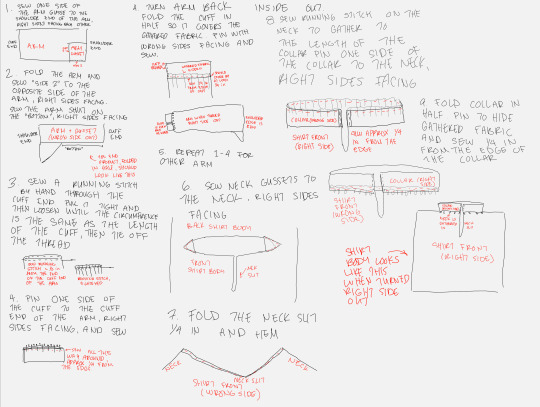 1. SEW ONE SIDE OF
THE ARM GUSSET TO THE
SHOULDER END OF THE ARM,
RIGHT SIDES FACING EACH OTHER
CUFF
END
ARM
ARM
GUSSET
SHOULDER
END
2 FOLD THE ARM AND
SEW "SIDE 2" TO THE
OPPOSITE SIDE OF THE
ARM, RIGHT SIDES FACING.
SEW THE ARM SHUT ON
THE "BOTTOM", RIGHT SIDES FACING
SHOULDER
END
ARM + GUSSET
(WRONG SIDE OUT)
CUFF
END
"BOTTOM"
END
PRODUCT, FOLDED
IN HALF, SHOULD
LOOK LIKE THIS
3 SEW A RUNNING STITCH
BY HAND THROUGH THE
CUFF END. PULL IT TIGHT AND
THEN LOOSEN UNTIL THE CIRCUMFERENCE
IS THE SAME AS THE LENGTH
OF THE CUFF, THEN TIE OFF
THE THREAD
4. PIN ONE SIDE OF
THE CUFF TO THE CUFF
END OF THE ARM, RIGHT
SIDES FACING, AND SEW
SEW ALL THE
WAY AROUND,
APPROX 1/4 FROM
THE EDGE
4. TURN ARM BACK INSIDE OUT
FOLD THE CUFF IN
HALF SO IT COVERS THE
GATHERED FABRIC. PIN WITH
WRONG SIDES FACING AND
SEW.
5. REPEAT 1-4 FOR
OTHER ARM
6. SEW NECK GUSSETS TO
THE NECK, RIGHT SIDES
FACING
BACK SHIRT BODY
FRONT
SHIRT BODY
NECK
SLIT
7. FOLD THE NECK SLIT
1/4 IN AND HEM
NECK
NECK SLIT
NECK
SHIRT FRONT
(WRONG SIDE)
8 SEW RUNNING STITCH ON THE
NECK TO GATHER TO
THE LENGTH OF THE
COLLAR. PIN ONE SIDE OF
THE COLLAR TO THE NECK,
RIGHT SIDES FACING
COLLAR (WRONG SIDE)
SHIRT FRONT
(RIGHT SIDE)
SEW APPROX 1/4
IN FROM THE
EDGE
9. FOLD COLLAR IN
HALF PIN TO HIDE
GATHERED FABRIC
AND SEW 1/4 IN
FROM THE EDGE OF
THE COLLAR
COLLAR (RIGHT SIDE)
SHIRT
FRONT
(WRONG
SIDE)
SHIRT
BODY LOOKS
LIKE THIS
WHEN TURNED
RIGHT SIDE
OUT
SHIRT FRONT
(RIGHT SIDE)